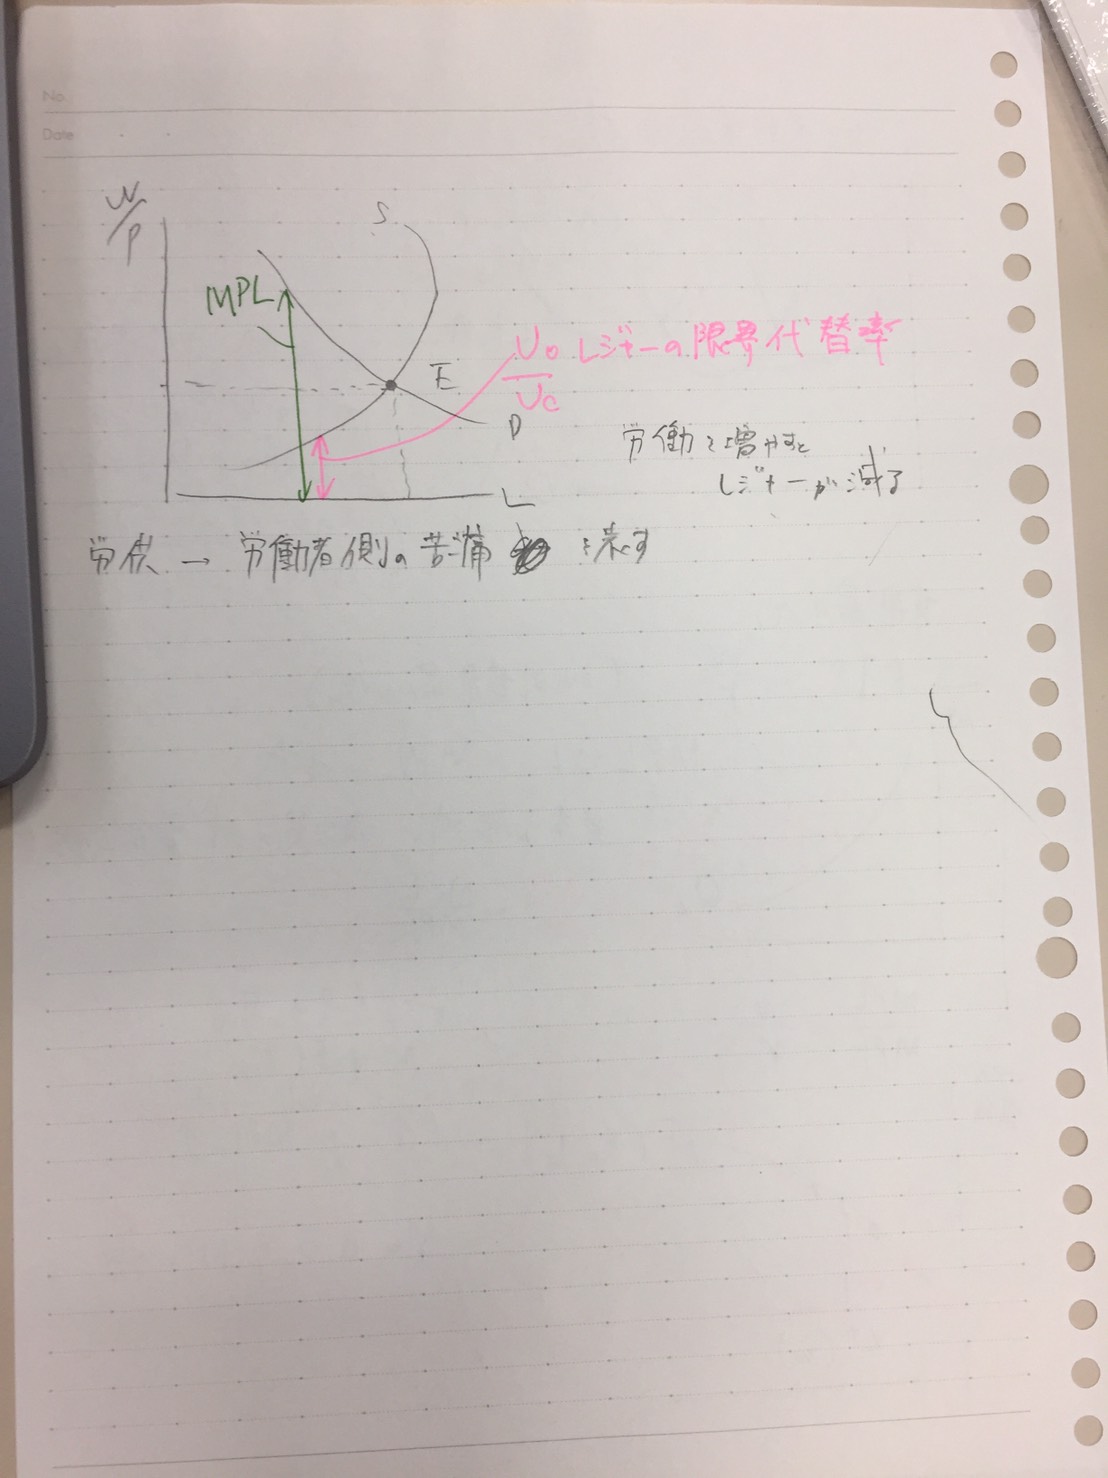 No.
Date
W/P
S
MPL
E
D
L
レジャーの限界代替率
Uc
労働を増やすと
レジャーが減る
労供 → 労働者側の苦痛 を表す